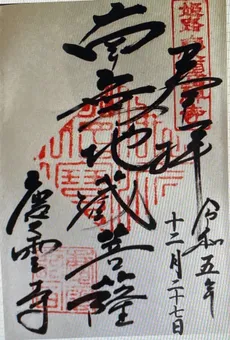 姫路
奉拝
令和五年
十二月二十七日
南無地蔵菩薩
慶雲寺